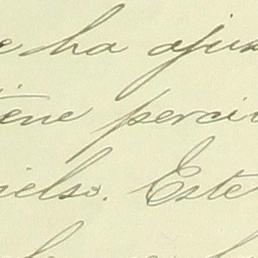 e ha ajus
iene perci
ielso. Este